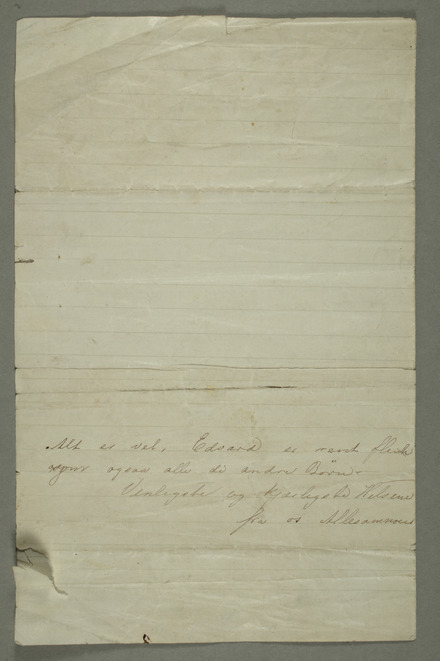 Alt er vel, Edvard er rent flink
ogsaa alle de andre Børn.
Venligste og kjærligste Hilsener
fra os Allesammen